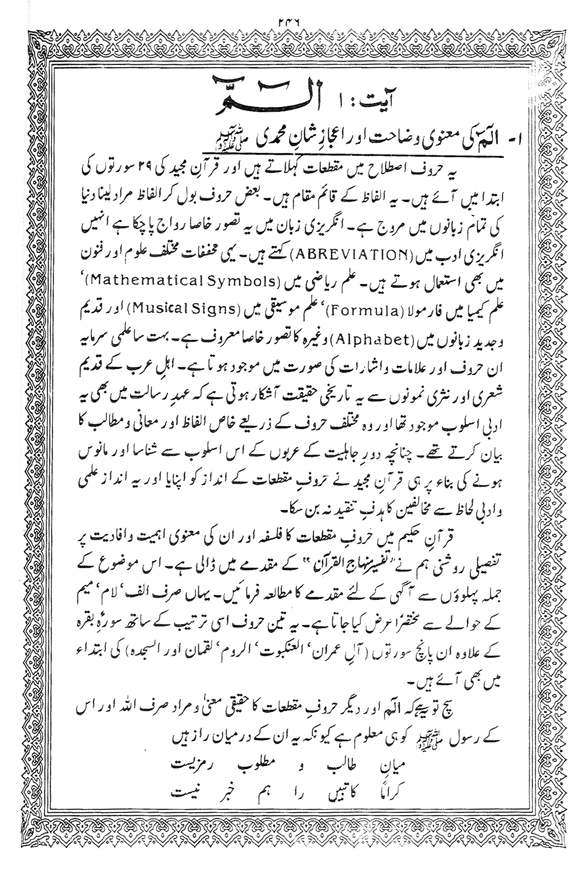 ۲۴۶
آیت : ۱ الٓــــمّٓ
۱- الٓمّٓ کی معنوی وضاحت اور اعجازِ شانِ محمدی ﷺ
یہ حروف اصطلاح میں مقطعات کہلاتے ہیں اور قرآنِ مجید کی ۲۹ سورتوں کی
ابتدا میں آئے ہیں۔ یہ الفاظ کے قائم مقام ہیں۔ بعض حروف بول کر الفاظ مراد لینا دنیا
کی تمام زبانوں میں مروج ہے۔ انگریزی زبان میں یہ تصور خاصا رواج پا چکا ہے انہیں
انگریزی ادب میں (ABREVIATION) کہتے ہیں۔ یہی مخففات مختلف علوم اور فنون
میں بھی استعمال ہوتے ہیں۔ علم ریاضی میں (Mathematical Symbols)‘
علم کیمیا میں فارمولا (Formula)‘ علم موسیقی میں (Musical Signs) اور قدیم
وجدید زبانوں میں (Alphabet) وغیرہ کا تصور خاصا معروف ہے۔ بہت سا علمی سرمایہ
ان حروف اور علامات واشارات کی صورت میں موجود ہوتا ہے۔ اہلِ عرب کے قدیم
شعری اور نثری نمونوں سے یہ تاریخی حقیقت آشکار ہوتی ہے کہ عہدِ رسالت میں بھی یہ
ادبی اسلوب موجود تھا اور وہ مختلف حروف کے ذریعے خاص الفاظ اور معانی ومطالب کا
بیان کرتے تھے۔ چنانچہ دورِ جاہلیت کے عربوں کے اس اسلوب سے شناسا اور مانوس
ہونے کی بناء پر ہی قرآنِ مجید نے حروفِ مقطعات کے انداز کو اپنایا اور یہ انداز علمی
وادبی لحاظ سے مخالفین کا ہدفِ تنقید نہ بن سکا۔
قرآنِ حکیم میں حروفِ مقطعات کا فلسفہ اور ان کی معنوی اہمیت وافادیت پر
تفصیلی روشنی ہم نے ”تفسیر منہاج القرآن“ کے مقدمے میں ڈالی ہے۔ اس موضوع کے
جملہ پہلوؤں سے آگہی کے لئے مقدمے کا مطالعہ فرمائیں۔ یہاں صرف الف‘ لام‘ میم
کے حوالے سے مختصراً عرض کیا جاتا ہے۔ یہ تین حروف اسی ترتیب کے ساتھ سورۂ بقرہ
کے علاوہ ان پانچ سورتوں (آلِ عمران‘ العنکبوت‘ الروم‘ لقمان اور السجدہ) کی ابتداء
میں بھی آئے ہیں۔
سچ تو یہ ہے کہ الٓمّٓ اور دیگر حروفِ مقطعات کا حقیقی معنیٰ ومراد صرف اللہ اور اس
کے رسول ﷺ کو ہی معلوم ہے کیونکہ یہ ان کے درمیان راز ہیں
میانِ طالب و مطلوب رمزیست
کراماً کاتبیں را ہم خبر نیست